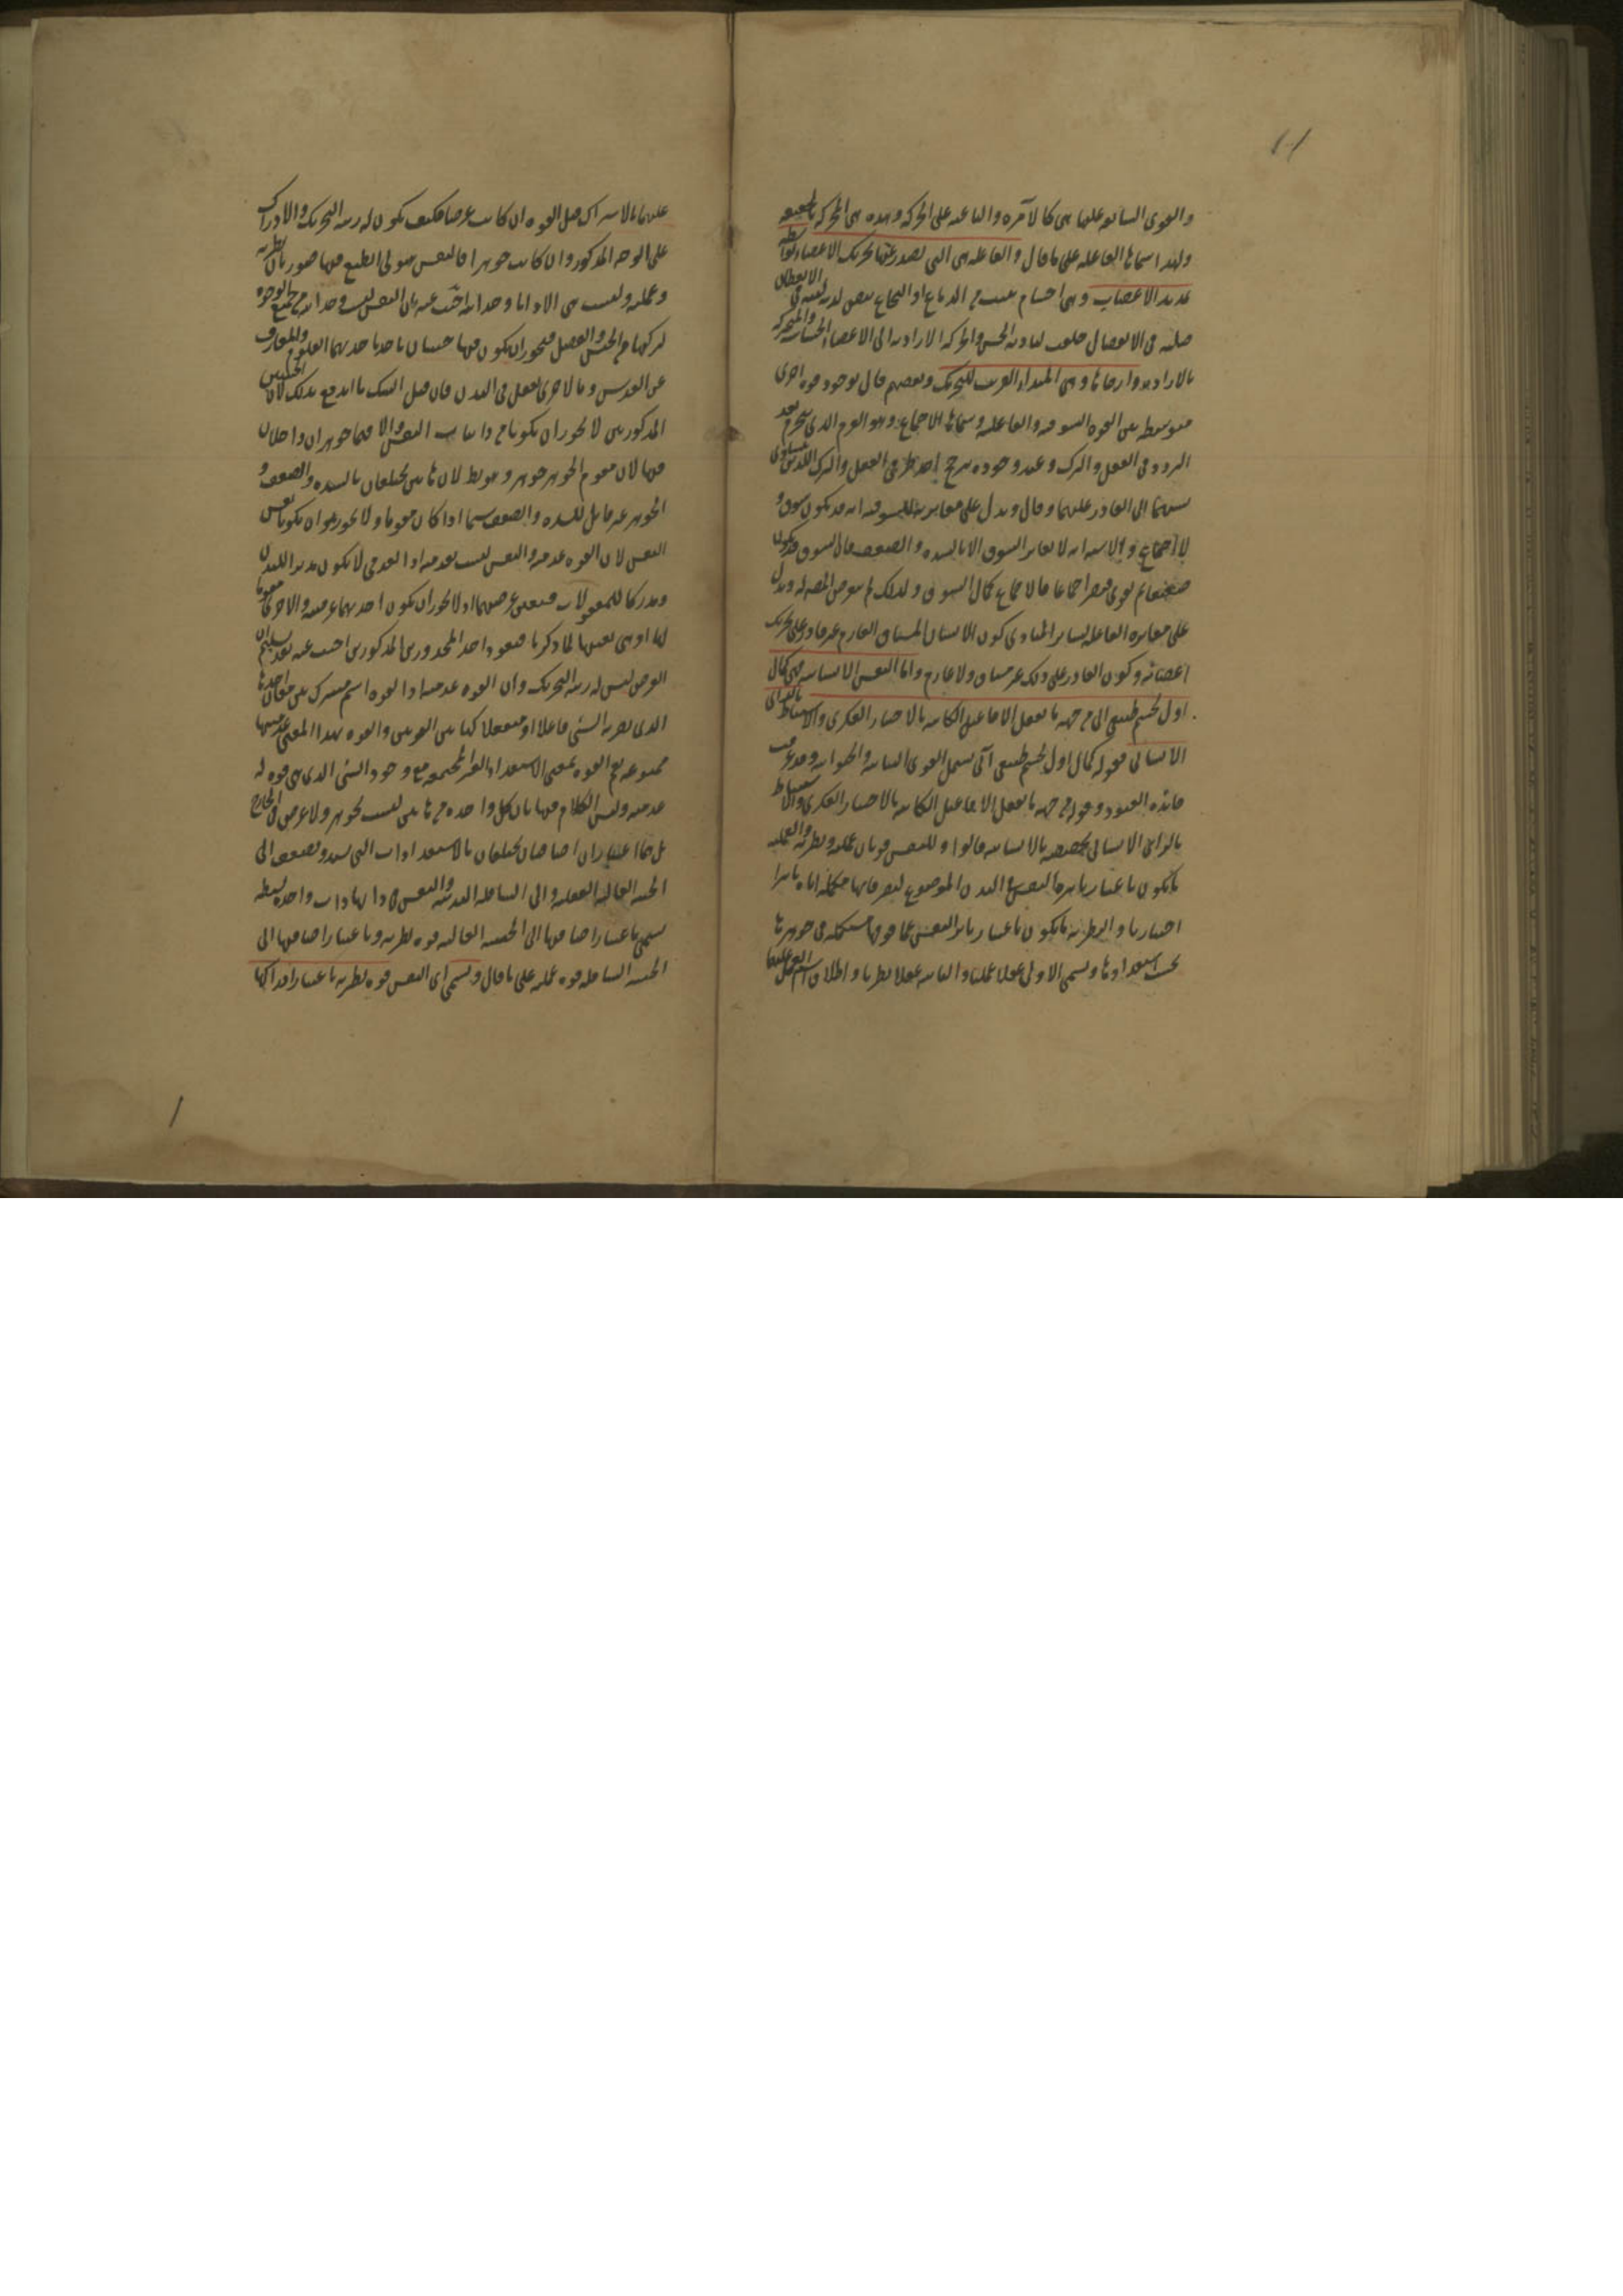 والقوى السابقة عليها هي كالآمرة والباعثة على الحركة وهذه هي المحركة بالحقيقة
ولهذا سماها الفاعلة على ما قال والفاعلة هي التي تصدر عنها تحريك الاعضاء بواسطة
تمديد الاعصاب وهي اجسام تنبت من الدماغ او النخاع بيض لدنة لينة في الانعطاف
صلبة في الانفصال خلقت لتأدية الحس والحركة الارادية الى الاعضاء الحساسة والمتحركة
بالارادة وارخائها وهي المبدأ القريب للتحريك وبعضهم قال بوجود قوة اخرى
متوسطة بين القوة الشوقية والفاعلة وسماها الاجماع وهو العزم الذي ينجزم بعد
التردد في الفعل والترك وعند وجوده يترجح احد طرفي الفعل والترك اللذين يتساوى
نسبتهما الى القادر عليهما وقال ويدل على مغايرته للشوقية انه قد يكون شوق و
لا اجماع والاشبه انه لا يغاير الشوق الا بالشدة والضعف فان الشوق قد يكون
ضعيفا ثم يقوى فيصير اجماعا فالاجماع كمال الشوق ولذلك لم يتعرض المصنف له ويدل
على مغايرة الفاعلة لسائر المبادي كون الانسان المشتاق العازم غير قادر على تحريك
اعضائه وكون القادر على ذلك غير مشتاق ولا عازم واما النفس الانسانية فهي كمال
اول لجسم طبيعي آلي من جهة ما يفعل الافاعيل الكائنة بالاختيار الفكري والاستنباط بالرأي
الانساني فقوله كمال اول لجسم طبيعي آلي يشمل القوى النباتية والحيوانية وقد عرفت
فائدة القيود وقوله من جهة ما يفعل الافاعيل الكائنة بالاختيار الفكري والاستنباط
بالرأي الانساني تخصيصه بالانسانية قالوا وللنفس قوتان عملية ونظرية والعملية
ما يكون باعتبار تأثير النفس في البدن الموضوع لتصرفاتها مكملة اياه تأثيرا
اختياريا والنظرية ما يكون باعتبار تأثر النفس عما فوقها مستكملة في جوهرها
بحسب استعدادها ويسمى الاولى عقلا عمليا والثانية عقلا نظريا واطلاق اسم العقل عليهما
عليهما بالاشتراك قيل القوة ان كانت عرضا فكيف يكون له رتبة التحريك والادراك
على الوجه المذكور وان كانت جوهرا فالنفس هيولى انطبع فيها صورتان نظرية
وعملية وليست هي الا ذاتا وحدانية اجيب عنه بان النفس ليست وحدانية من جميع الوجوه
لتركبها من الجنس والفصل فيجوز ان يكون فيها حيثيتان باحداهما العلوم والمعارف
عن القدس وبالاخرى يفعل في البدن فان قيل الشك ما اندفع بذلك لان الحيثيتين
المذكورتين لا يجوز ان يكونا من ذاتيات النفس والا فهما جوهران داخلان
فيها لان مقوم الجوهر جوهر وهو بط لانهما مختلفان بالشدة والضعف و
الجوهر غير قابل للشدة والضعف سيما اذا كان مقوما ولا يجوز ان يكونا نفس
النفس لان القوة عدمية والنفس ليست بعدمية اذ العدمي لا يكون مدبرا للبدن
ومدركا للمعقولات فيتعين عرضيتهما اذ لا يجوز ان يكون احدهما عرضية والاخرى مقوما
لها او هي بعينها لما ذكرنا فيعود احد المحذورين المذكورين اجيب عنه بعد تسليم ان
العرض ليس له رتبة التحريك وان القوة عدمية اذ القوة اسم مشترك بين معان احدها
الذي يصير به الشيء فاعلا او منفعلا كهاتين القوتين والقوة بهذا المعنى عدميتها
ممنوعة نعم القوة بمعنى الاستعداد الغير المجتمعة مع وجود الشيء الذي هي قوة له
عدمية وليس الكلام فيها بان كل واحدة من هاتين ليست بجوهر ولا عرض في الخارج
بل هما اعتباران اضافيان يختلفان بالاستعدادات التي تشتد وتضعف الى
الجنبة العالية العقلية والى السافلة البدنية والنفس في ذاتها ذات واحدة بسيطة
يسمى باعتبار اضافتها الى الجنبة العالية قوة نظرية وباعتبار اضافتها الى
الجنبة السافلة قوة عملية على ما قال ويسمى اي النفس قوة نظرية باعتبار ادراكها